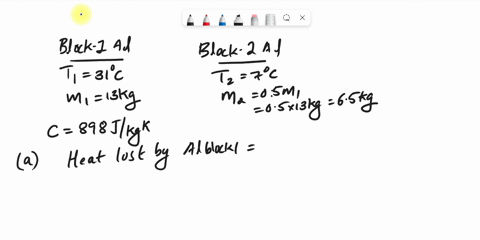 Block-1 Al
T1 = 31°C
m1 = 13kg
Block-2 Al
T2 = 7°C
m2 = 0.5m1
= 0.5x13kg = 6.5kg
C = 898 J/kgK
(a) Heat lost by Al block1 =